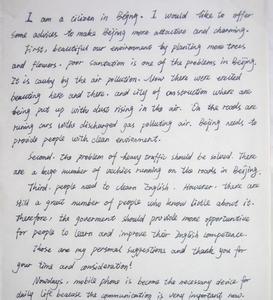 I am a citizen in Bejng. I would like to offer
some advices to make Beijing more attractive and charming.
First, beautiful our environment by planting more trees
and flowers. poor sanitation is one of the problems in Beijing.
It is cauby by the air pollution. Now there were erected
beauting here and there. and city of cosstruction where are
being put up with dust rising in the air. On the roads are
runing cars with discharged gas polluting air. Beijing needs to
provide people with clean envirament.
Second. the problem of heavy traffic should be solved. There
are a huge number of vechies running on the roads in Beijing.
Third, people need to clearn English. However. there are
still a great number of people who know liddle about it.
Therefore, the government should provide more opportunities
for people to learn and improve their English competence.
Those are my personal suggestions and thank you for
your time and consideration!
Nowdays, mobile phone is become the necessary device for
daily life because the communication is very important now.